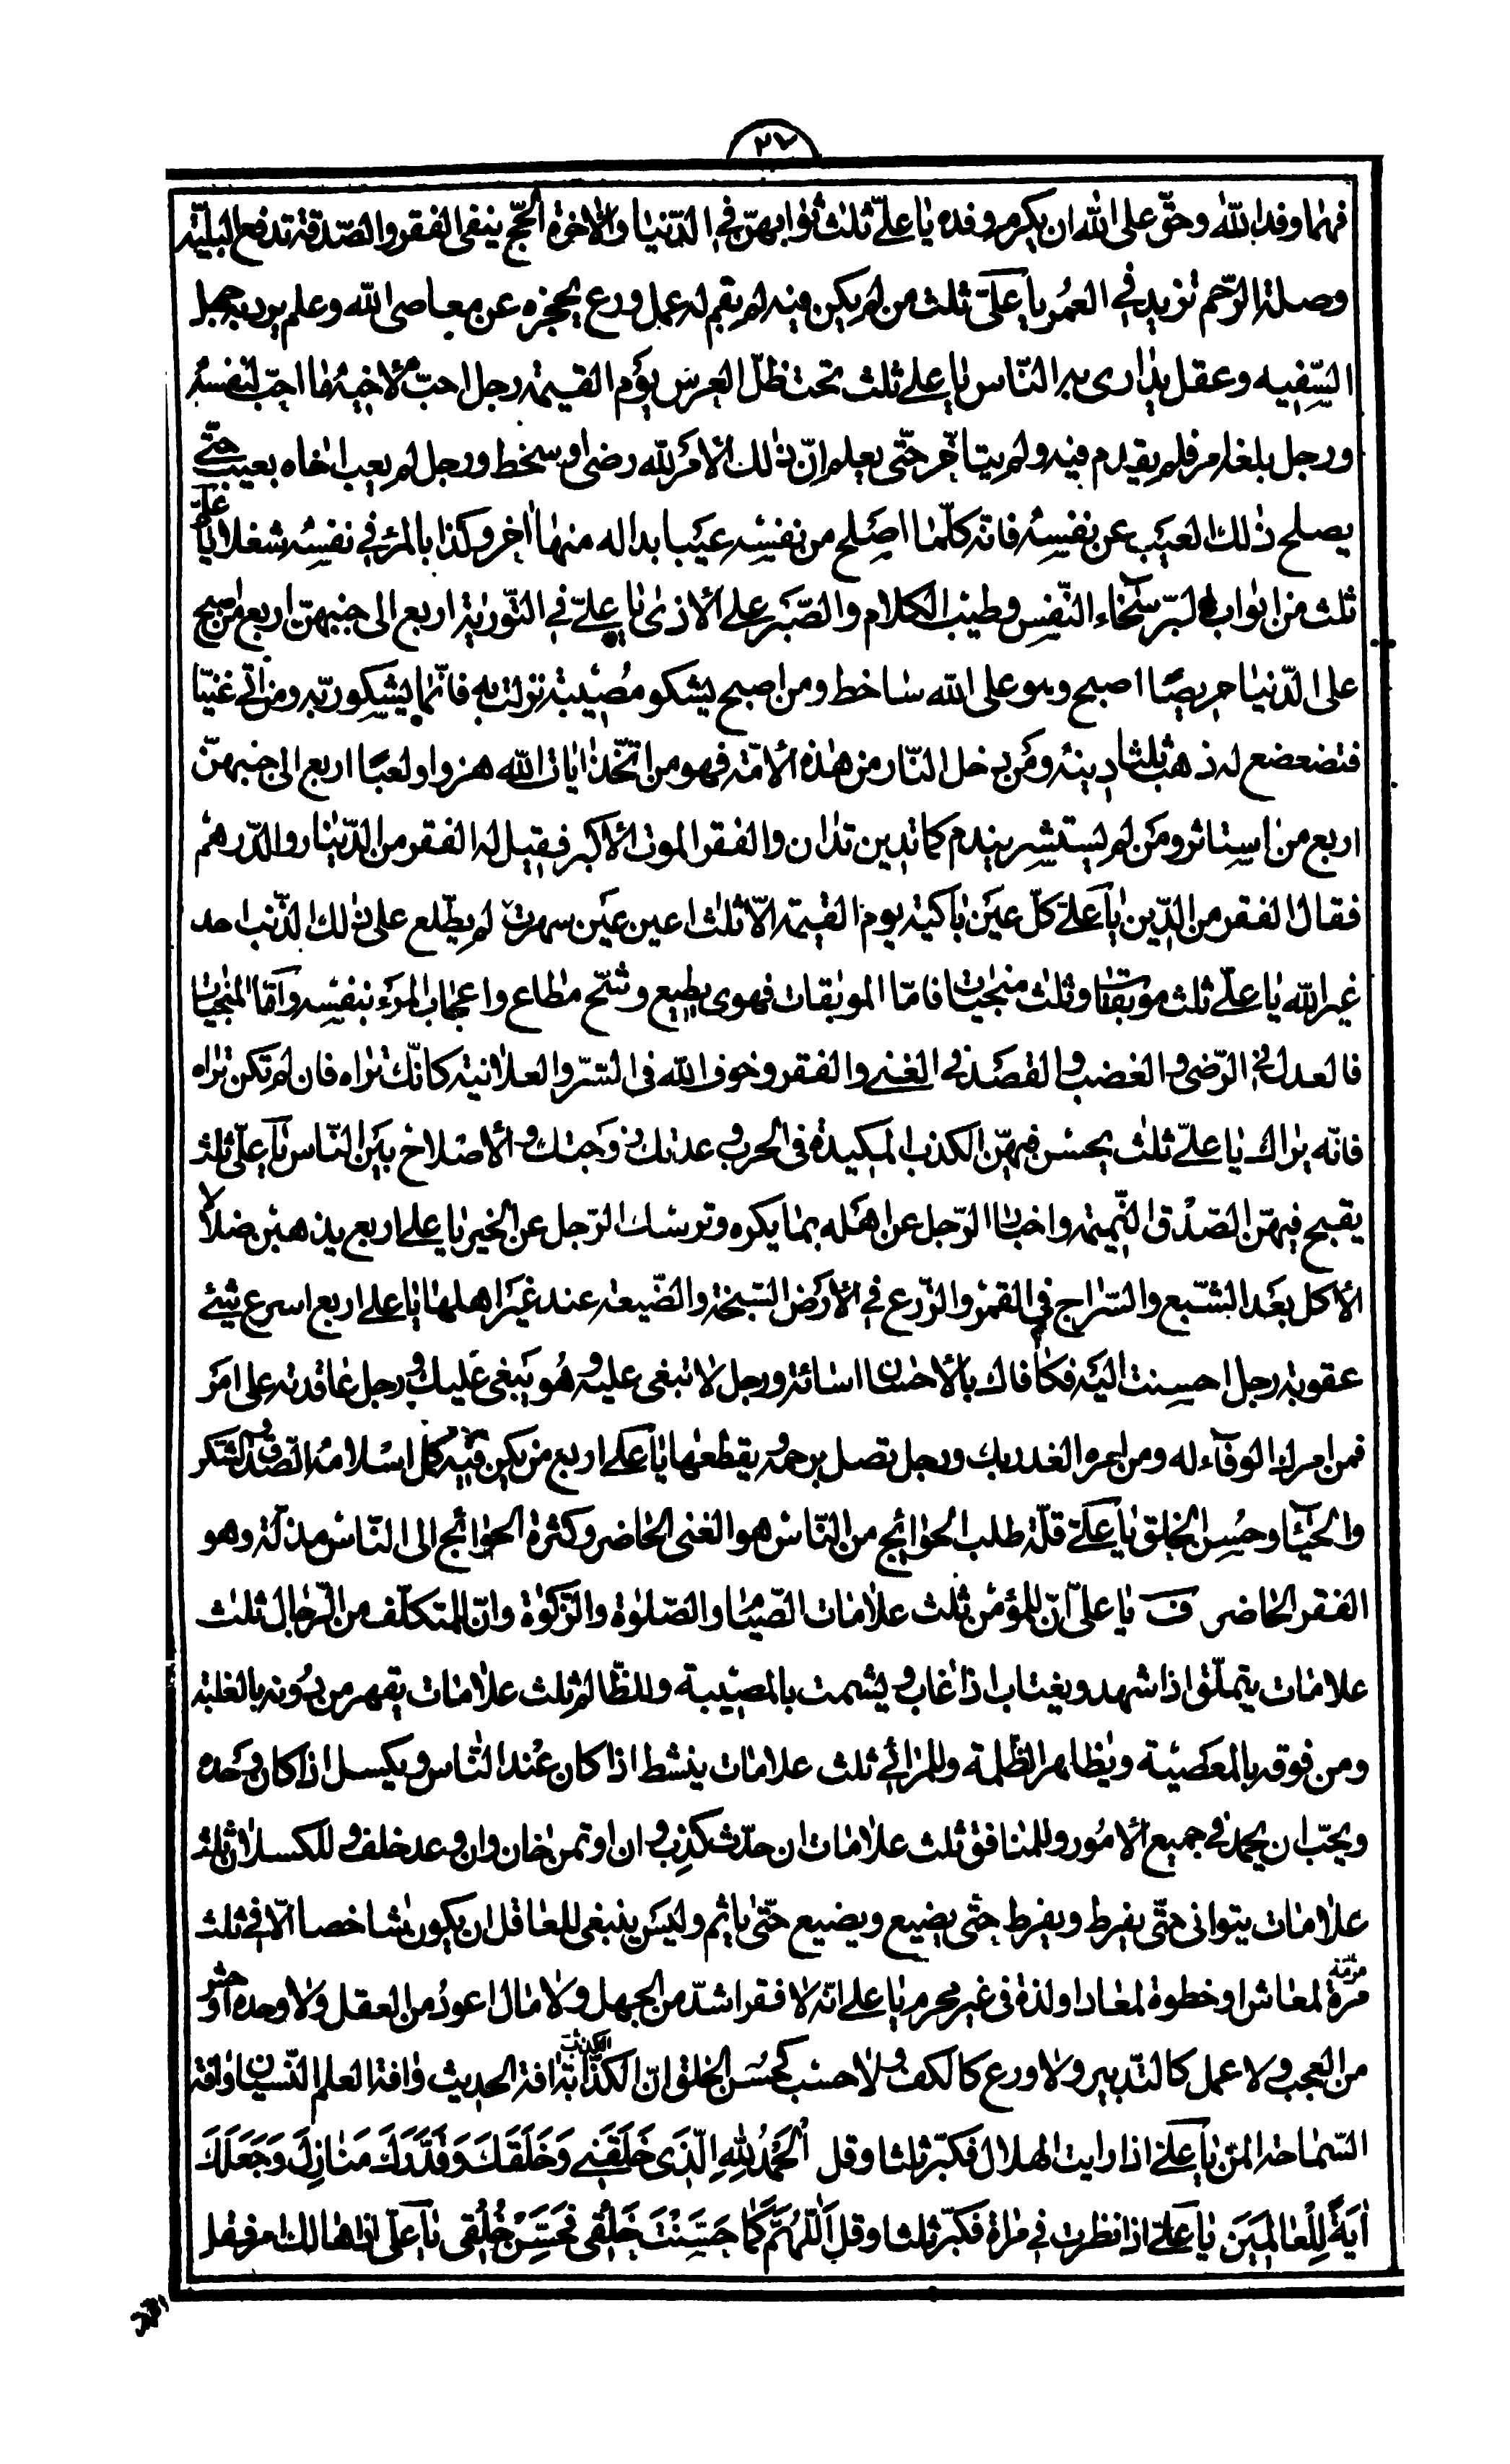 ٢٧
فهما وفد الله وحقّ على الله ان يكرم وفده يا علىّ ثلث ثوابهنّ فى الدّنيا والاخرة الحجّ ينفى الفقر والصّدقة تدفع البليّة
وصلة الرّحم تزيد فى العمر يا علىّ ثلث من لم يكن فيه لم يقم له عمل ورع يحجزه عن معاصى الله وعلم يرد به جهل
السّفيه وعقل يدارى به النّاس يا على ثلث تحت ظلّ العرش يوم القيمة رجل احبّ لاخيه ما احبّ لنفسه
ورجل بلغه امر فلم يقدم فيه ولم يتاخّر حتّى يعلم انّ ذلك الامر لله رضى او سخط ورجل لم يعب اخاه بعيب حتّى
يصلح ذلك العيب عن نفسه فانه كلّما اصلح من نفسه عيبا بدا له منها اخر وكفى بالمرء فى نفسه شغلا يا علىّ
ثلث من ابواب البرّ سخاء النّفس وطيب الكلام والصّبر على الاذى يا علىّ فى التّورية اربع الى جنبهنّ اربع من اصبح
على الدّنيا حريصا اصبح وهو على الله ساخط ومن اصبح يشكو مصيبة نزلت به فانّما يشكو ربّه ومن اتى غنيّا
فتضعضع له ذهب ثلثا دينه ومن دخل النّار من هذه الامّة فهو من اتّخذ ايات الله هزوا ولعبا اربع الى جنبهنّ
اربع من استاثر ومن لم يستشر يندم كما تدين تدان والفقر الموت الاكبر فقيل له الفقر من الدّينار والدّرهم
فقال الفقر من الدّين يا علىّ كلّ عين باكية يوم القيمة الّا ثلث اعين عين سهرت لم يطّلع على ذلك الذّنب احد
غير الله يا علىّ ثلث موبقات وثلث منجيات فامّا الموبقات فهوى يطيع وشحّ مطاع واعجاب المرء بنفسه وامّا المنجيات
فالعدل فى الرّضى والغضب والقصد فى الغنى والفقر وخوف الله فى السّر والعلانية كانّك تراه فان لم تكن تراه
فانّه يراك يا علىّ ثلث يحسن فيهنّ الكذب المكيدة فى الحرب وعدتك زوجتك والاصلاح بين النّاس يا علىّ ثلث
يقبح فيهنّ الصّدق النّميمة واخبار الرّجل عن اهله بما يكره وتر الرّجل عن الخير يا على اربع يذهبن ضلالا
الاكل بعد الشّبع والسّراج فى القمر والزّرع فى الارض السّبخة والضّيعة عند غير اهلها يا على اربع اسرع شئ
عقوبة رجل احسنت اليه فكافاك بالاحسان اسائة ورجل لا تبغى عليه وهو يبغى عليك ورجل عاقدته على امر
فمن امرك الوفاء له ومن امره الغدر بك ورجل تصل رحمه ويقطعها يا على اربع من يكن فيه كمل اسلامه الصّدق والشّكر
والحياء وحسن الخلق يا علىّ قلّة طلب الحوائج من النّاس هو الغنى الحاضر وكثرة الحوائج الى النّاس مذلّة وهو
الفقر الحاضر ف يا علىّ انّ للمؤمن ثلث علامات الصّيام والصّلوة والزّكوة وانّ للمتكلّف من الرّجال ثلث
علامات يتملّق اذا شهد ويغتاب اذا غاب ويشمت بالمصيبة وللظّالم ثلث علامات يقهر من دونه بالغلبة
ومن فوقه بالمعصية ويظاهر الظّلمة وللمرائى ثلث علامات ينشط اذا كان عند النّاس ويكسل اذا كان وحده
ويحبّ ان يحمد فى جميع الامور وللمنافق ثلث علامات ان حدّث كذب وان اوتمن خان وان وعد خلف وللكسلان ثلث
علامات يتوانى حتّى يفرط ويفرط حتّى يضيع ويضيع حتّى ياثم وليس ينبغى للعاقل ان يكون شاخصا الّا فى ثلث
مرمّة لمعاش او خطوة لمعاد او لذة فى غير محرم يا على انّه لا فقر اشدّ من الجهل ولا مال اعود من العقل ولا وحدة اوحش
من العجب ولا عمل كالتّدبير ولا ورع كالكف ولا حسب كحسن الخلق انّ الكذب افة الحديث وافة العلم النّسيان وافة
السّماحة المنّ يا علىّ اذا رايت الهلال فكبّر ثلثا وقل اَلْحَمْدُ لِلّهِ الَّذِى خَلَقَنِى وَخَلَقَكَ وَقَدَّرَكَ مَنَازِلَ وَجَعَلَكَ
اٰيَةً لِلْعَالَمِينَ يا علىّ اذا نظرت فى مراة فكبّر ثلثا وقل اَللّهُمَّ كَمَا حَسَّنْتَ خَلْقِى فَحَسِّنْ خُلُقِى يا علىّ اذا هالك امر فقل